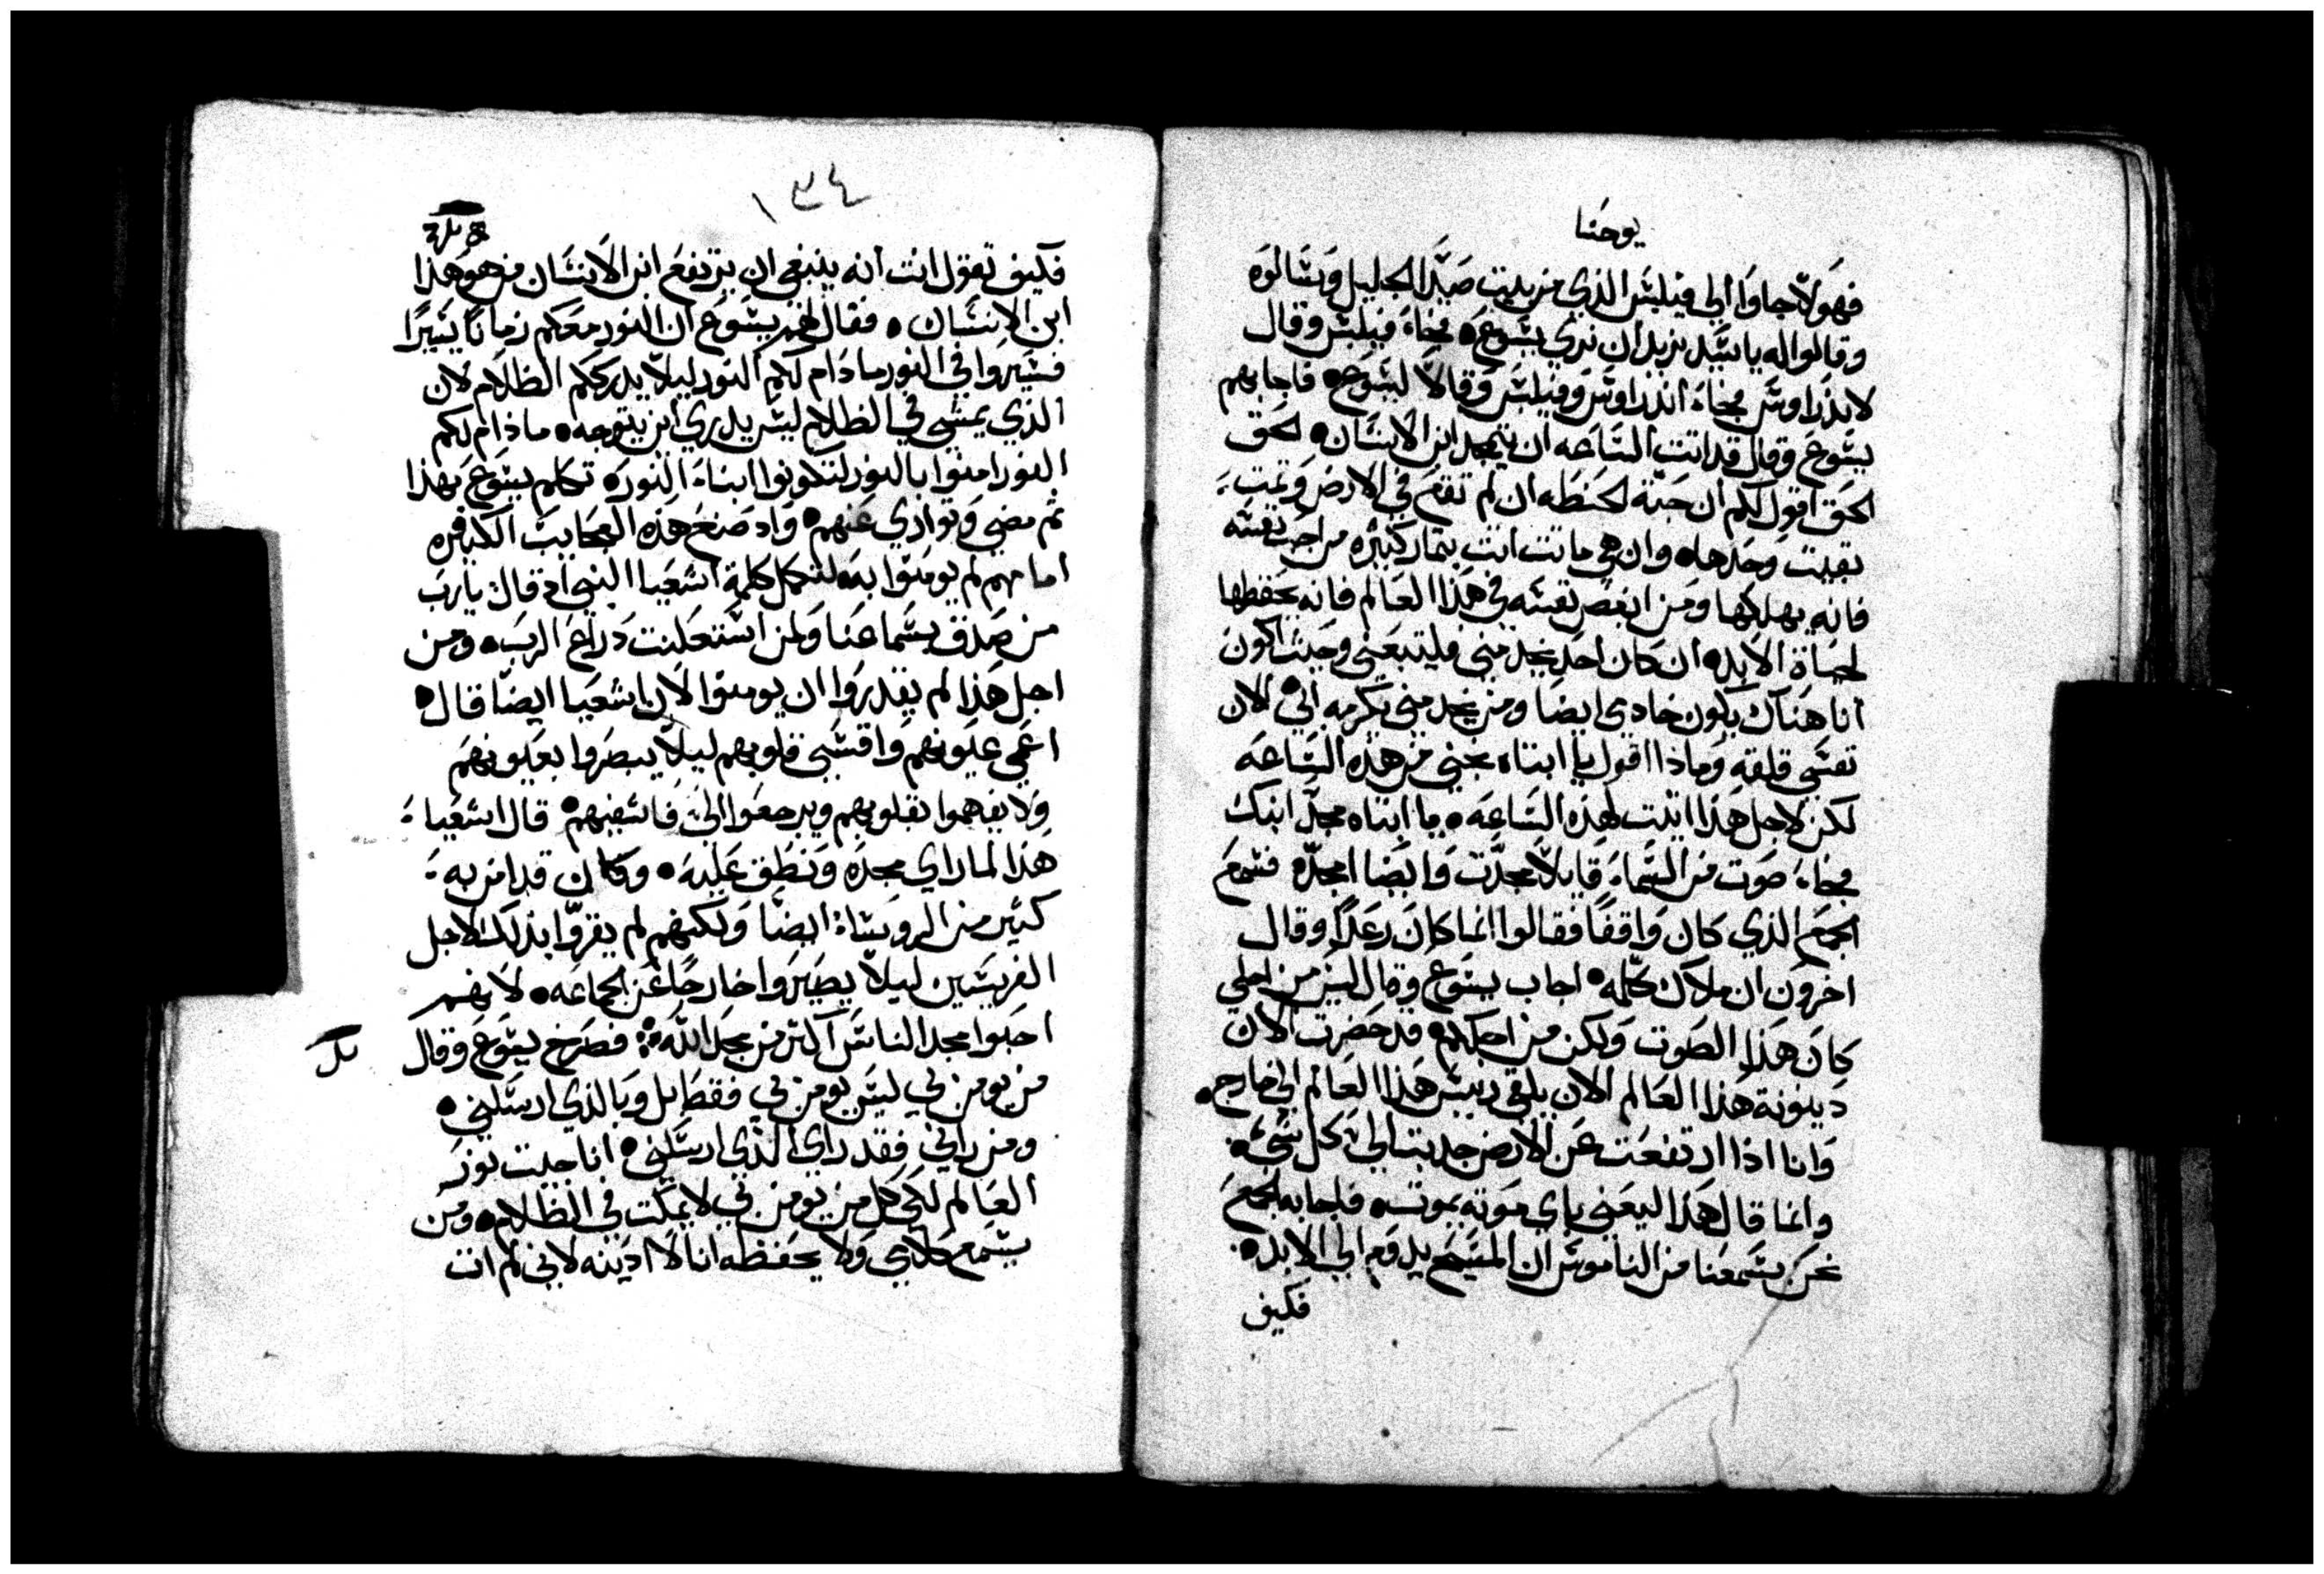 يوحنا
فهولآ جاوا الي فيلبس الذي من بيت صيدا الجليل وسالوه
وقالوا له يا سيد نريد ان نري يسوع فجاء فيلبس وقال
لاندراوس فجاء اندراوس وفيلبس وقالا ليسوع فاجابهم
يسوع وقال قد اتت الساعه ان يتمجد ابن الانسان الحق
الحق اقول لكم ان حبة الحنطه ان لم تقع في الارض وتمت
بقيت وحدها وان هي ماتت اتت بثمار كثيره من احب نفسه
فانه يهلكها ومن ابغض نفسه في هذا العالم فانه يحفظها
لحياة الابد ان كان احد يخدمني فليتبعني وحيث اكون
انا هناك يكون خادمي ايضا ومن يخدمني يكرمه ابي الان
نفسي قلقه وماذا اقول يا ابتاه نجني من هذه الساعه
لكن لاجل هذا اتيت لهذه الساعه يا ابتاه مجد ابنك
فجاء صوت من السماء قايلا مجدت وايضا امجده فسمع
الجمع الذي كان واقفا فقالوا انما كان رعدا وقال
اخرون ان ملاك كلمه اجاب يسوع وقال ليس من اجلي
كان هذا الصوت ولكن من اجلكم قد حضرت الان
دينونة هذا العالم الان يلقي رييس هذا العالم الي خارج
وانا اذا ارتفعت عن الارض جدبت الي كل شيء
وانما قال هذا ليعني باي موته يموت فاجابه الجمع
نحن سمعنا من الناموس ان المسيح يدوم الي الابد
فكيف
١٣٤
فكيف تقول انت انه ينبغي ان يرتفع ابن الانسان من هو هذا
ابن الانسان فقال لهم يسوع ان النور معكم زمانا يسيرا
فسيروا في النور مادام لكم النور ليلا يدرككم الظلام لان
الذي يمشي في الظلام ليس يدري اين يتوجه مادام لكم
النور امنوا بالنور لتكونوا ابناء النور تكلم يسوع بهذا
ثم مضي وتواري عنهم واد صنع هذه العجايب الكثيره
امامهم لم يومنوا به لتكمل كلمة اشعيا النبي اد قال يا رب
من صدق بسماعنا ولمن استعلنت دراع الرب ومن
اجل هذا لم يقدروا ان يومنوا لان اشعيا ايضا قال
اعمي عيونهم واقسي قلوبهم ليلا يبصروا بعيونهم
ولا يفهموا بقلوبهم ويرجعوا الي فاشفيهم قال اشعيا
هذا لما راي مجده ونطق عليه وكان قد امن به
كثير من الروساء ايضا ولكنهم لم يقروا بذلك لاجل
الفريسين ليلا يصيروا خارجا عن الجماعه لانهم
احبوا مجد الناس اكثر من مجد الله فصرخ يسوع وقال
من يومن بي ليس يومن بي فقط بل وبالذي ارسلني
ومن راني فقد راي الذي ارسلني انا جيت نور
العالم لكي كل من يومن بي لا يمكت في الظلام ومن
يسمع كلامي ولا يحفظه انا لا ادينه لاني لم ات